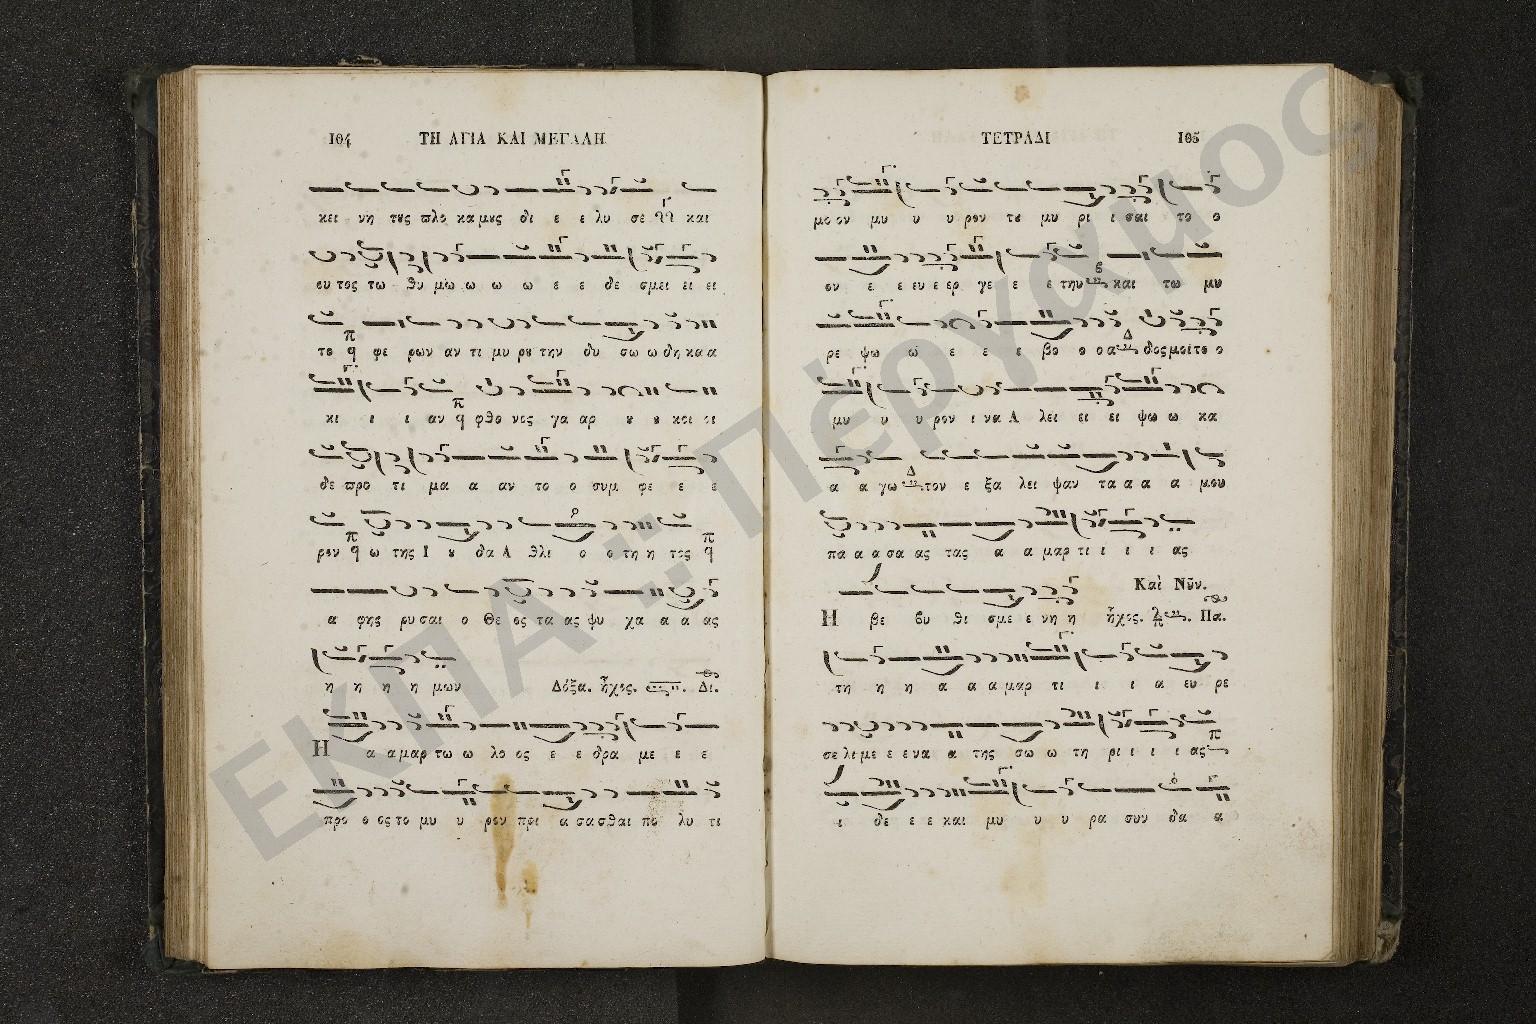 104 ΤΗ ΑΓΙΑ ΚΑΙ ΜΕΓΑΛΗ
κει νη τους πλο κα μους δι ε ε λυ σε και
ου τος τω θυ μω ω ω ω ε ε δε σμει ει ει
το φε ρων αν τι μυ ρου την δυ σω ω δη κα α
κι ι ι αν φθο νος γα αρ ου ου κοι οι
δε προ τι μα α αν το ο συμ φε ε ε
ρον ω της Ι ου δα Α θλι ο ο τη η τος
α φης ρυ σαι ο Θε ος τα ας ψυ χα α α ας
η η η η μων Δόξα. ἦχος. Δι.
Η α α μαρ τω ω λο ος ε ε δρα με ε ε
προ ο ος το μυ υ ρον πρι α σα σθαι πο λυ τι
ΤΕΤΡΑΔΙ 105
μο ον μυ υ υ ρον του μυ ρι ι σαι το ο
ον ε ε ευ ε ερ γε ε ε την και τω μυ
ρε ψω ω ε ε ε βο ο ο α δος μοι το ο
μυ υ υ ρον ι να Α λει ει ει ψω ω κα
α α γω τον ε ξα λει ψαν τα α α α μου
πα α α σα ας τας α α μαρ τι ι ι ι ας
Καὶ Νῦν.
Η βε βυ θι σμε ε νη η ἦχος. Πα.
τη η η α α α μαρ τι ι ι α ευ ρε
σε λι με ε ε να α της σω ω τη ρι ι ι ι ας
ι δε ε ε και μυ υ υ ρα συν δα α
ΕΚΠΑ :: Πέργαμος